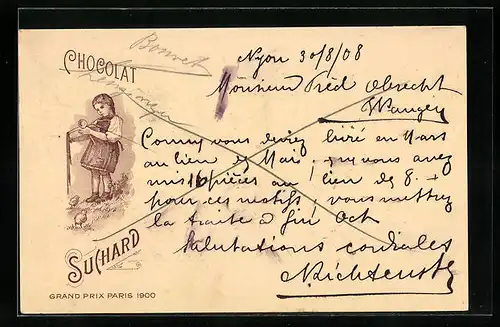 CHOCOLAT
Bonvet
Nyon 30/8/08
Monsieur Fréd Obrecht
Wangen
Comme vous deviez livré en Mars
au lieu de Mai, vous avez
mis 16 pièces au lieu de 8 +
pour ces motifs, vous mettrez
la traite à fin Oct
Salutations cordiales
SUCHARD
GRAND PRIX PARIS 1900